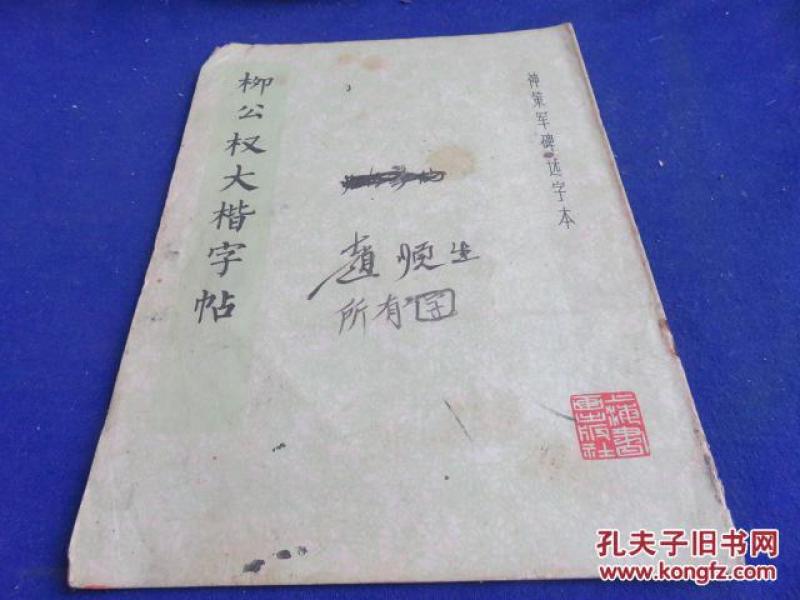 神策军碑·选字本
柳公权大楷字帖
趙顺生
所有
上海书画出版社
孔夫子旧书网
www.kongfz.com